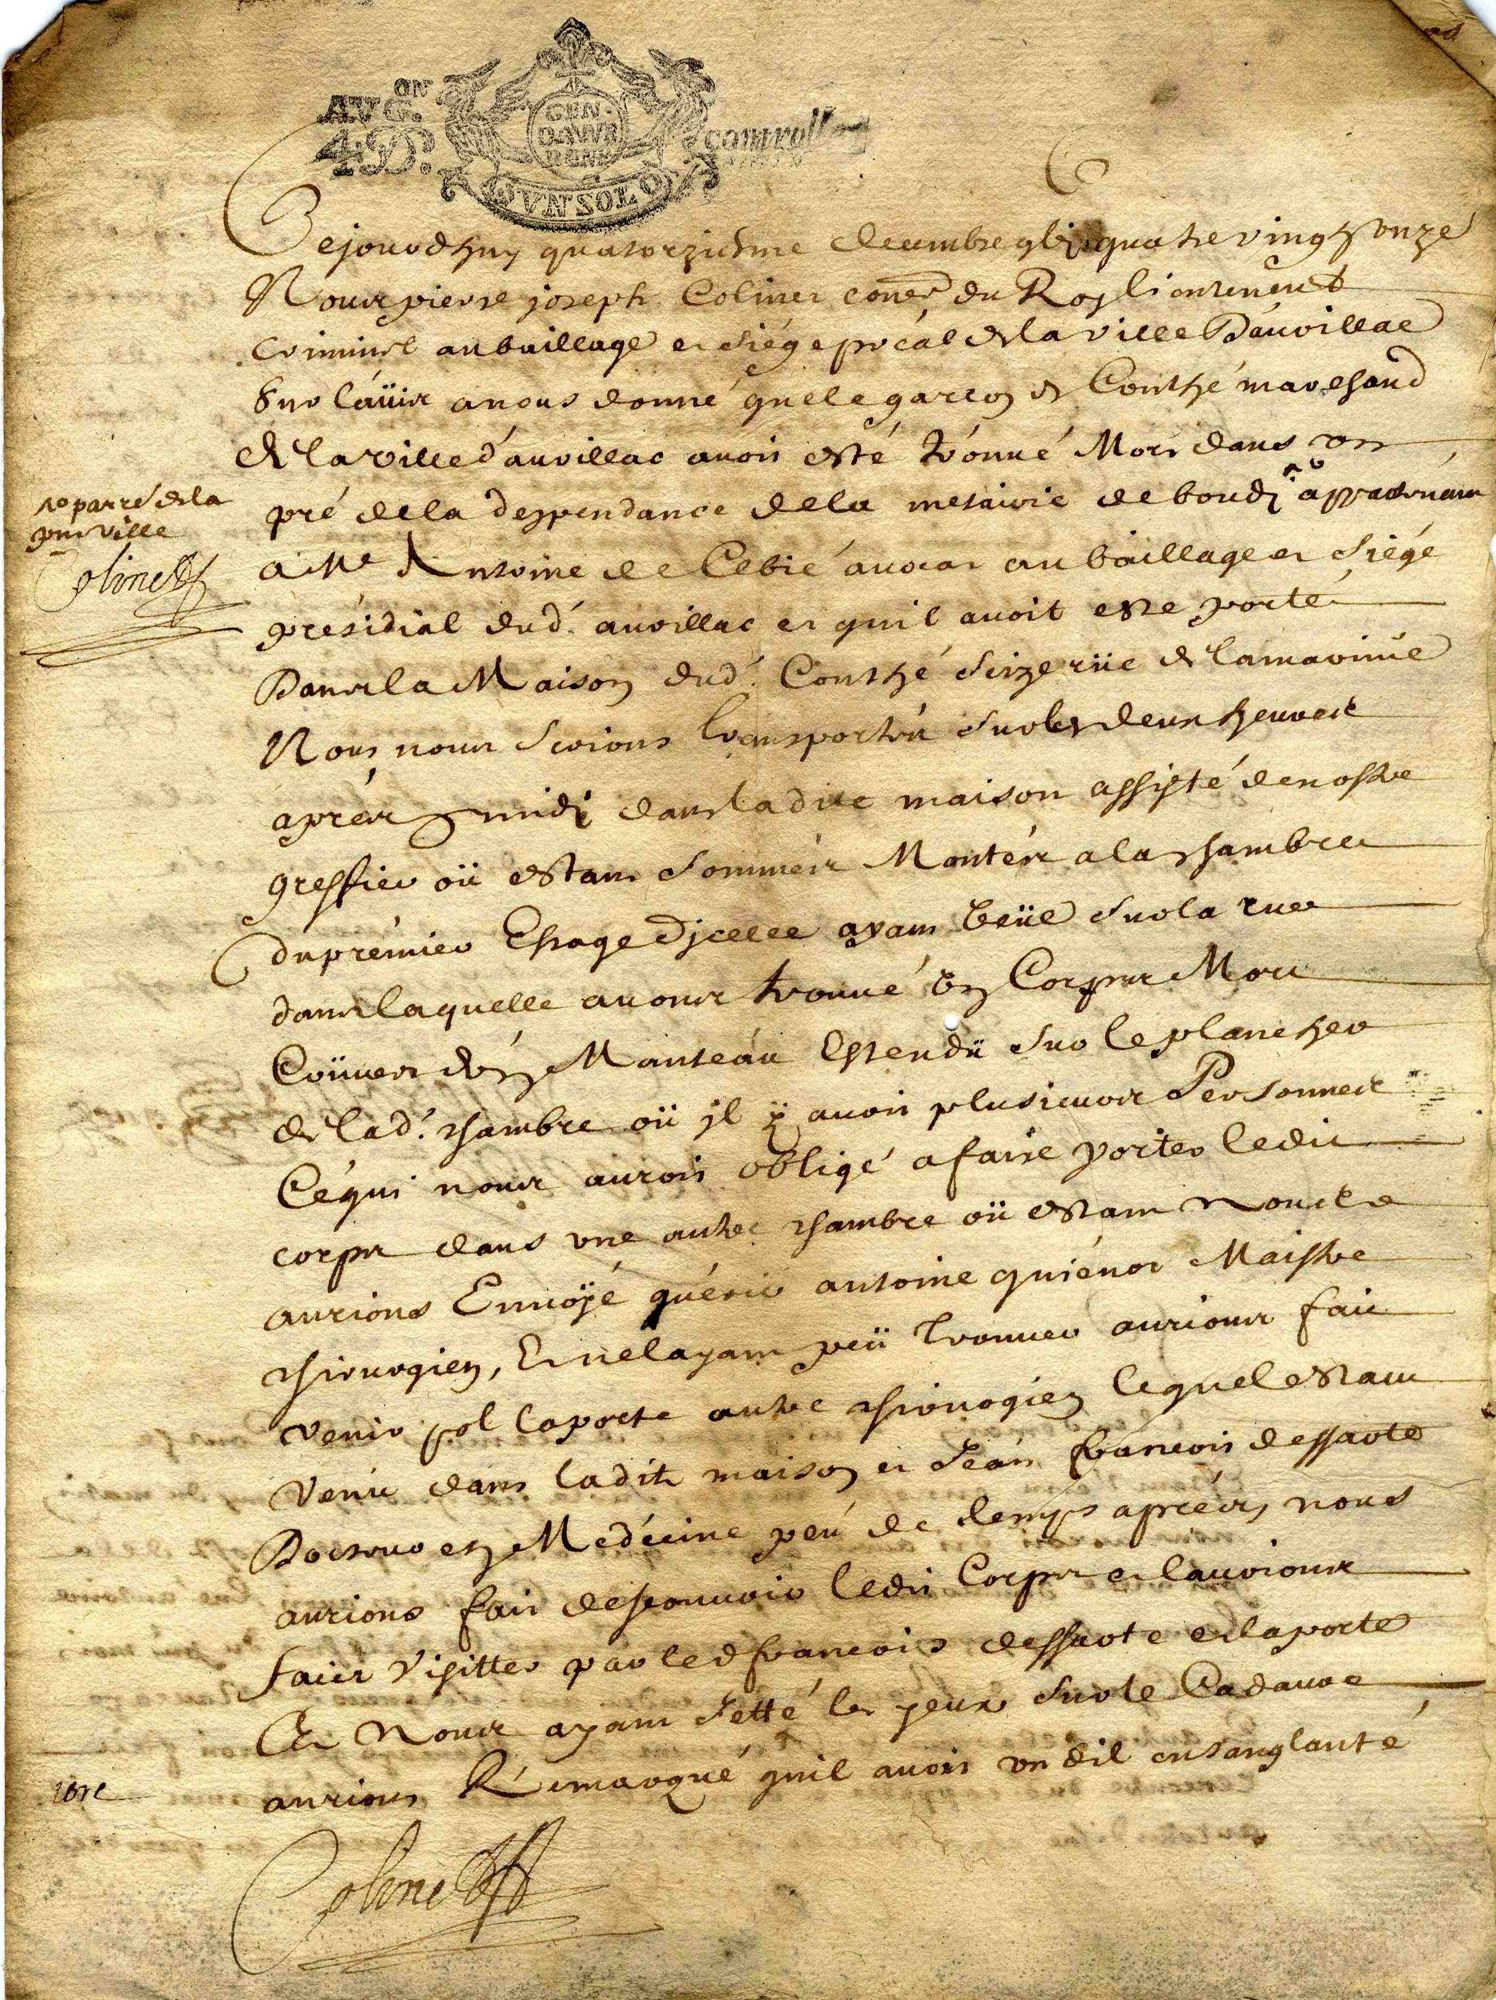 AVG.ON
4 D.
GEN-
DAWE
RGNE
VN SOL
controlle
Cejourdhuy quatorziesme decembre gbjc quatre vingt onze
Nous pierre joseph Colinet coner du Roy lieutenent
Criminel au baillage et siége pŕcal de la ville Dáuvillac
Sur láuis a nous donné que le garcon de Conthé marchand
de la ville d'auvillac avoit esté trouvé Mort dans un
pré de la despendance de la metairie de boudj appartenám
a Me Antoine de Cebié avocat au baillage et siégé
présidial dud. auvillac et quil avoit este porté
Dans la Maison dud. Conthé size rüe de la
Nous nous serions transportés sur les deux heures
aprés midj dans la dite maison assisté de nostre
greffier oü estans sommés Montés a la chambre
du prémier Estage djcelle ayant veüe sur la rue
dans laquelle avons trouvé un Corps Mort
Coüvert dun Manteáu Estendü sur le plancher
de lad. chambre oü jl ÿ avoit plusieurs Personnes
Cé qui nous auroit obligé a faire porter ledit
corps dans une autre chambre oü estant Nous
aurions Envoÿé quérir antoine quiénot Maistre
chirurgien, Et ne layant peü trouver aurions fait
venir pol laporte autre chirurgien lequel estant
venu dans ladite maison et Jeán francois dessarte
Docteur en Medécine peú de temps aprés, nous
aurions fait descouvrir ledit Corps et laurions
faict visitter par led francois dessarte et laporte
Et Nous ayant Jetté les yeux sur le Cadavre
aurions Rémarqué quil avoit un oeil ensanglanté
de la
pnt ville
Colinet
Colinet